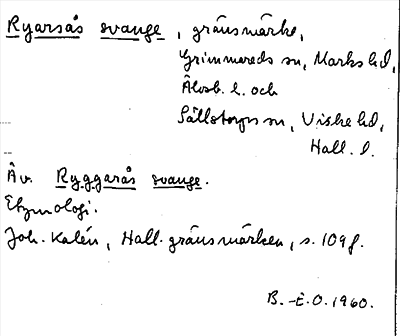 Ryarsås svange, gränsmärke,
Grimmareds sn, Marks hd,
Älvsb. l. och
Sällstorps sn, Viske hd,
Hall. l.
Äv. Ryggarås svange.
Etymologi.
Joh. Kalén, Hall. gränsmärken, s. 109 f.
B.-E.O. 1960.